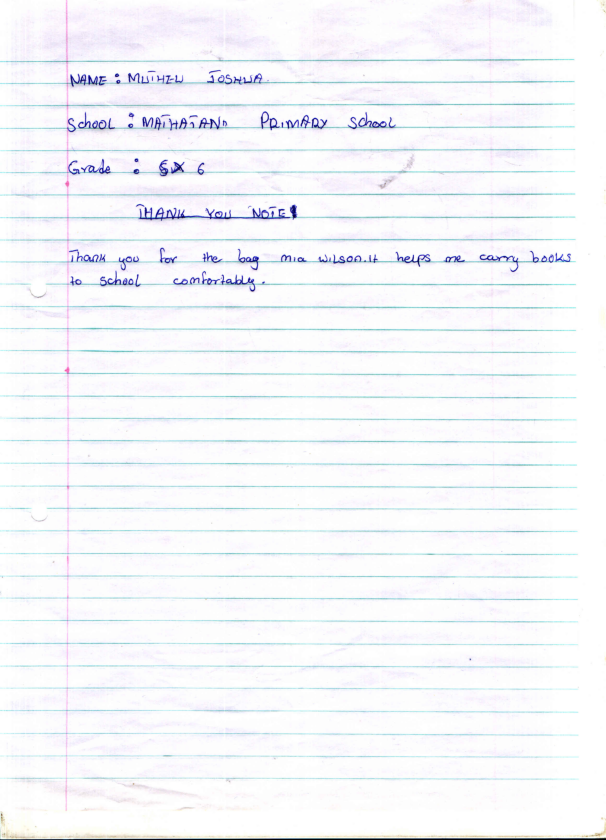 NAME : MUTHEU JOSHUA.
School : MATHATANI PRIMARY School
Grade : 6
THANK YOU NOTE!
Thank you for the bag mia wilson.It helps me carry books
to school comfortably.